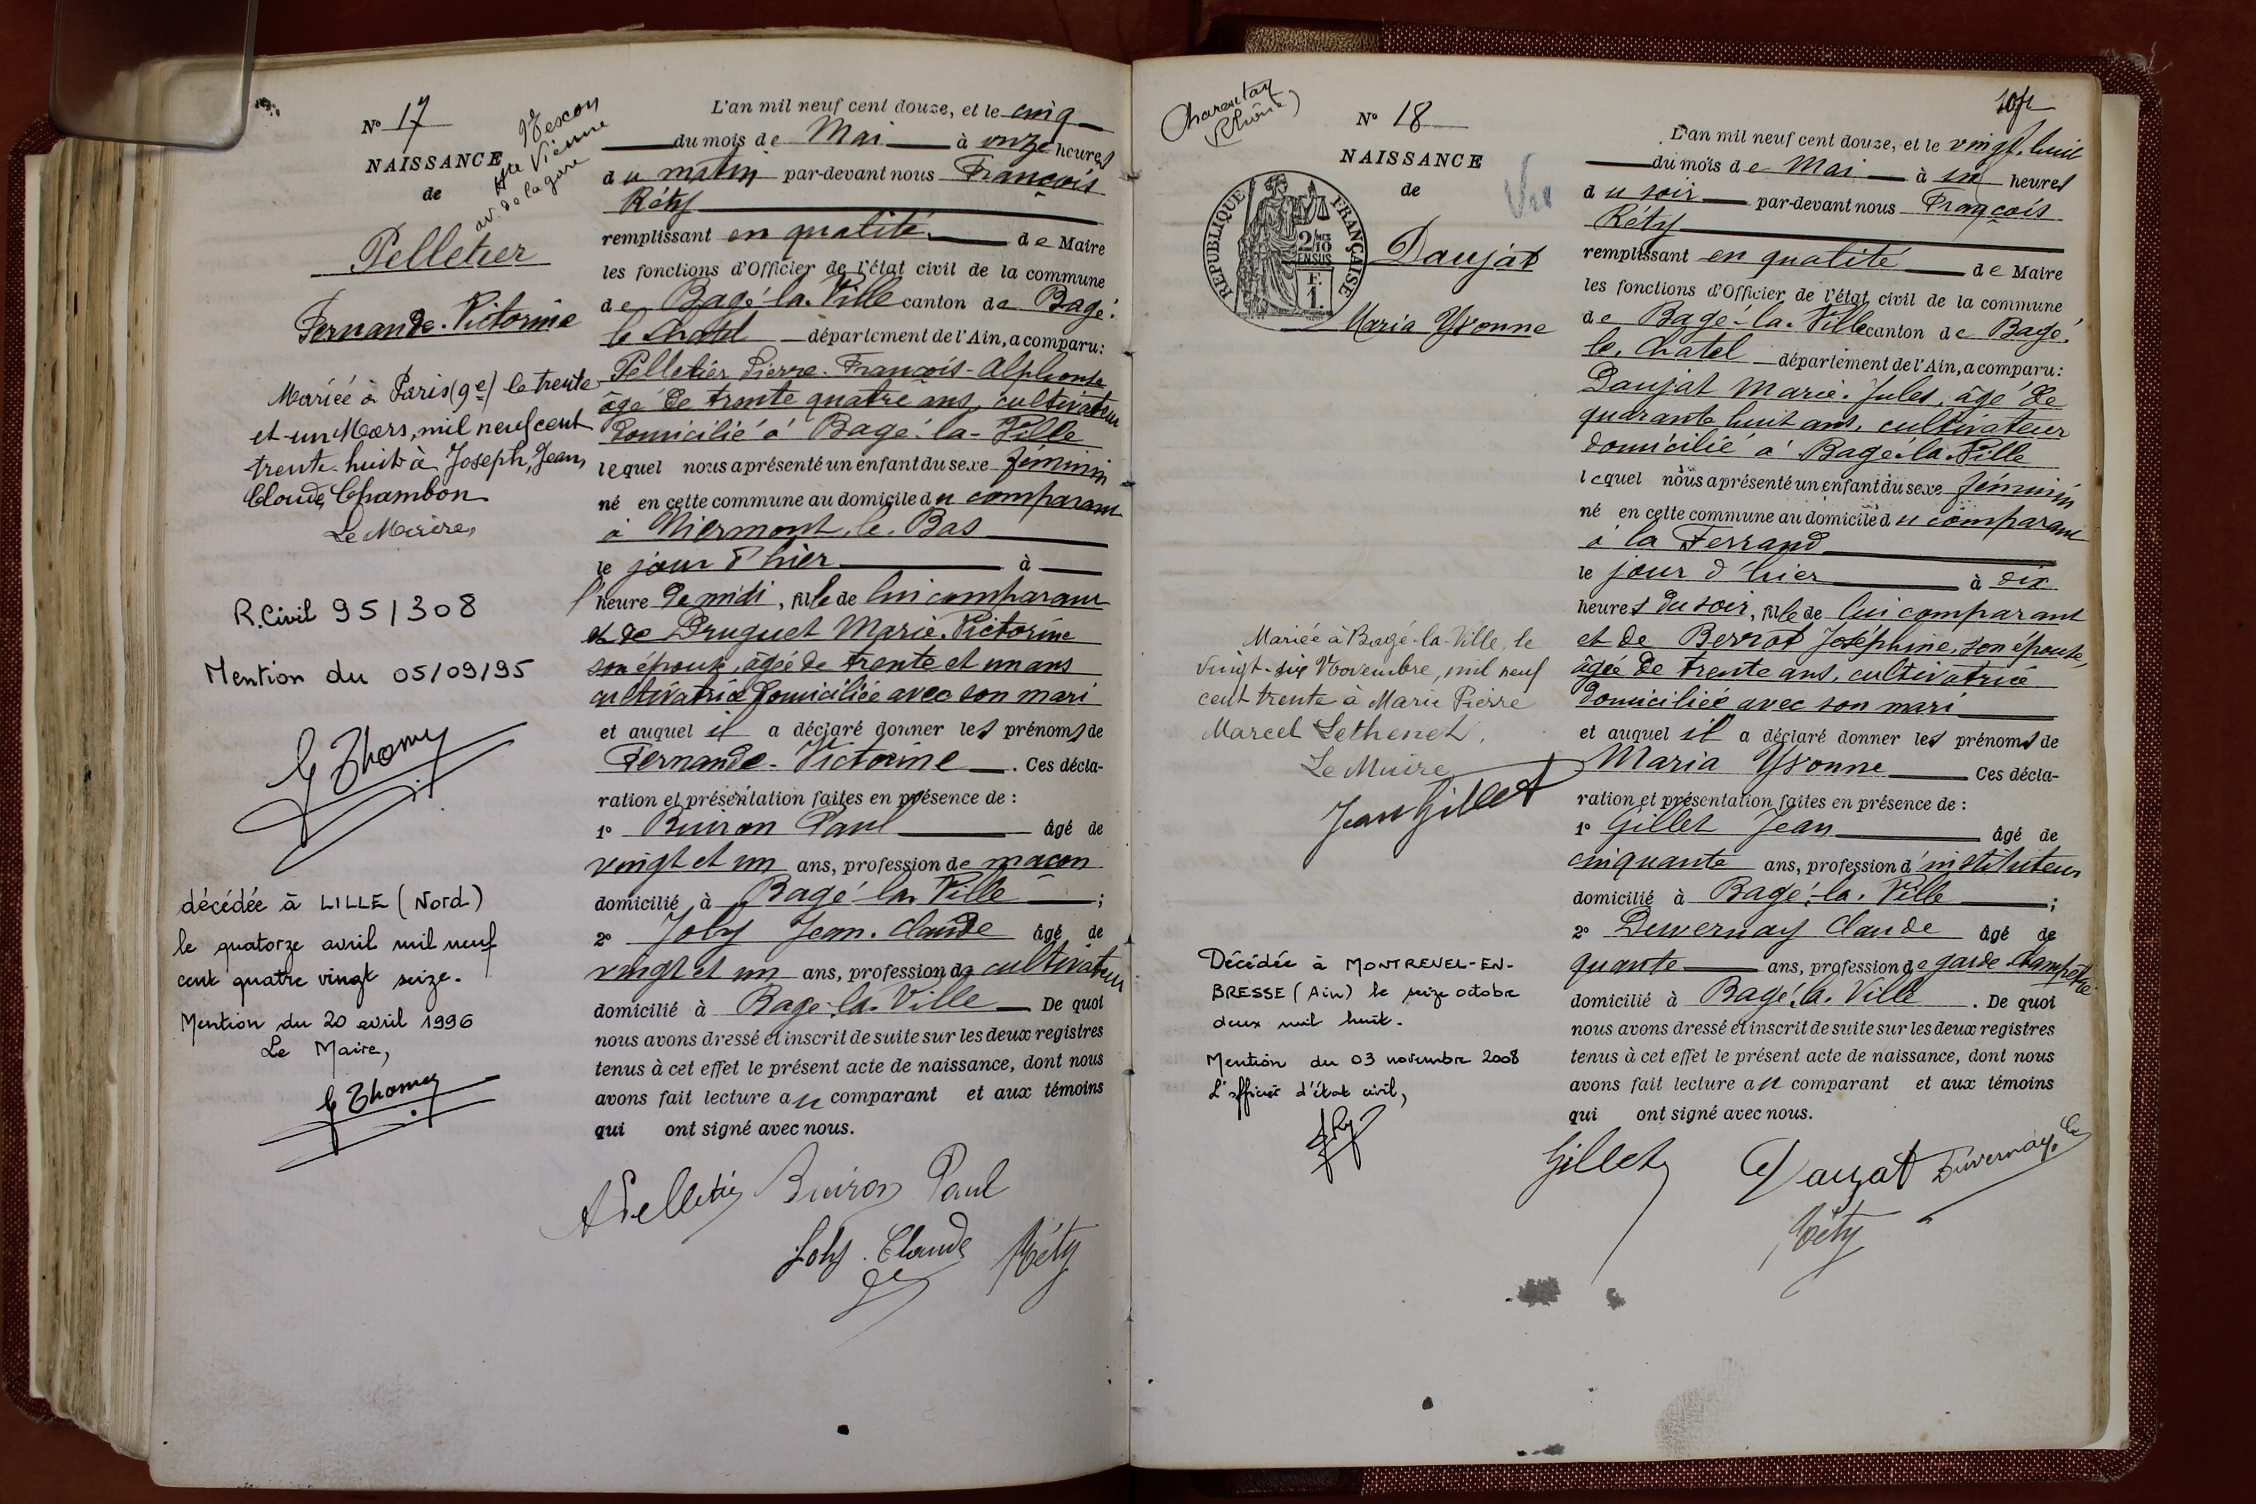 N° 17
NAISSANCE
de
Hte Vienne
av. de la gare
Pelletier
Fernande-Victorine
Mariée à Paris (9e) le trente
et un Mars, mil neuf cent
trente huit à Joseph, Jean,
Claude Chambon
Le Maire,
R. Civil 95/308
Mention du 05/09/95
G Thomy
décédée à LILLE (Nord)
le quatorze avril mil neuf
cent quatre vingt seize.
Mention du 20 avril 1996
Le Maire,
G Thomy
L'an mil neuf cent douze, et le cinq
du mois de Mai à onze heures
du matin par-devant nous François
Réty
remplissant en qualité de Maire
les fonctions d'Officier de l'état civil de la commune
de Bagé-la-Ville canton de Bagé-
le Chatel département de l'Ain, a comparu:
Pelletier Pierre-François-Alphonse
âgé de trente quatre ans, cultivateur
domicilié à Bagé-la-Ville
lequel nous a présenté un enfant du sexe féminin
né en cette commune au domicile du comparant
à Niermont-le-Bas
le jour d'hier à
l'heure de midi, fille de lui comparant
et de Druguet Marie-Victorine
son épouse, âgée de trente et un ans
cultivatrice domiciliée avec son mari
et auquel il a déclaré donner les prénoms de
Fernande-Victorine. Ces décla-
ration et présentation faites en présence de :
1° Buiron Paul âgé de
vingt et un ans, profession de maçon
domicilié à Bagé-la-Ville ;
2° Joly Jean-Claude âgé de
vingt et un ans, profession de cultivateur
domicilié à Bagé-la-Ville De quoi
nous avons dressé et inscrit de suite sur les deux registres
tenus à cet effet le présent acte de naissance, dont nous
avons fait lecture au comparant et aux témoins
qui ont signé avec nous.
A Pelletier Buiron Paul
Joly Claude Réty
Charentay
(Rhône)
N° 18
NAISSANCE
de
Vu
REPUBLIQUE FRANÇAISE
2/10 EN SUS
F. 1.
Daujat
Maria Yvonne
Mariée à Bagé-la-Ville, le
vingt-six Novembre, mil neuf
cent trente à Marie Pierre
Marcel Lethenet.
Le Maire
Jean Gillet
Décédée à MONTREVEL-EN-
BRESSE (Ain) le seize octobre
deux mil huit.
Mention du 03 novembre 2008
L'officier d'état civil,
L'an mil neuf cent douze, et le vingt-huit
du mois de Mai à une heures
du soir par-devant nous François
Réty
remplissant en qualité de Maire
les fonctions d'Officier de l'état civil de la commune
de Bagé-la-Ville canton de Bagé-
le-Chatel département de l'Ain, a comparu:
Daujat Marie-Jules, âgé de
quarante huit ans, cultivateur
domicilié à Bagé-la-Ville
lequel nous a présenté un enfant du sexe féminin
né en cette commune au domicile du comparant
à la Ferrand
le jour d'hier à dix
heures du soir, fille de lui comparant
et de Berrot Joséphine, son épouse,
âgée de trente ans, cultivatrice
domiciliée avec son mari
et auquel il a déclaré donner les prénoms de
Maria Yvonne Ces décla-
ration et présentation faites en présence de :
1° Gillet Jean âgé de
cinquante ans, profession d'instituteur
domicilié à Bagé-la-Ville ;
2° Duvernay Claude âgé de
quante ans, profession de garde champêtre
domicilié à Bagé-la-Ville. De quoi
nous avons dressé et inscrit de suite sur les deux registres
tenus à cet effet le présent acte de naissance, dont nous
avons fait lecture au comparant et aux témoins
qui ont signé avec nous.
Gillet Daujat Duvernay Cl
Réty